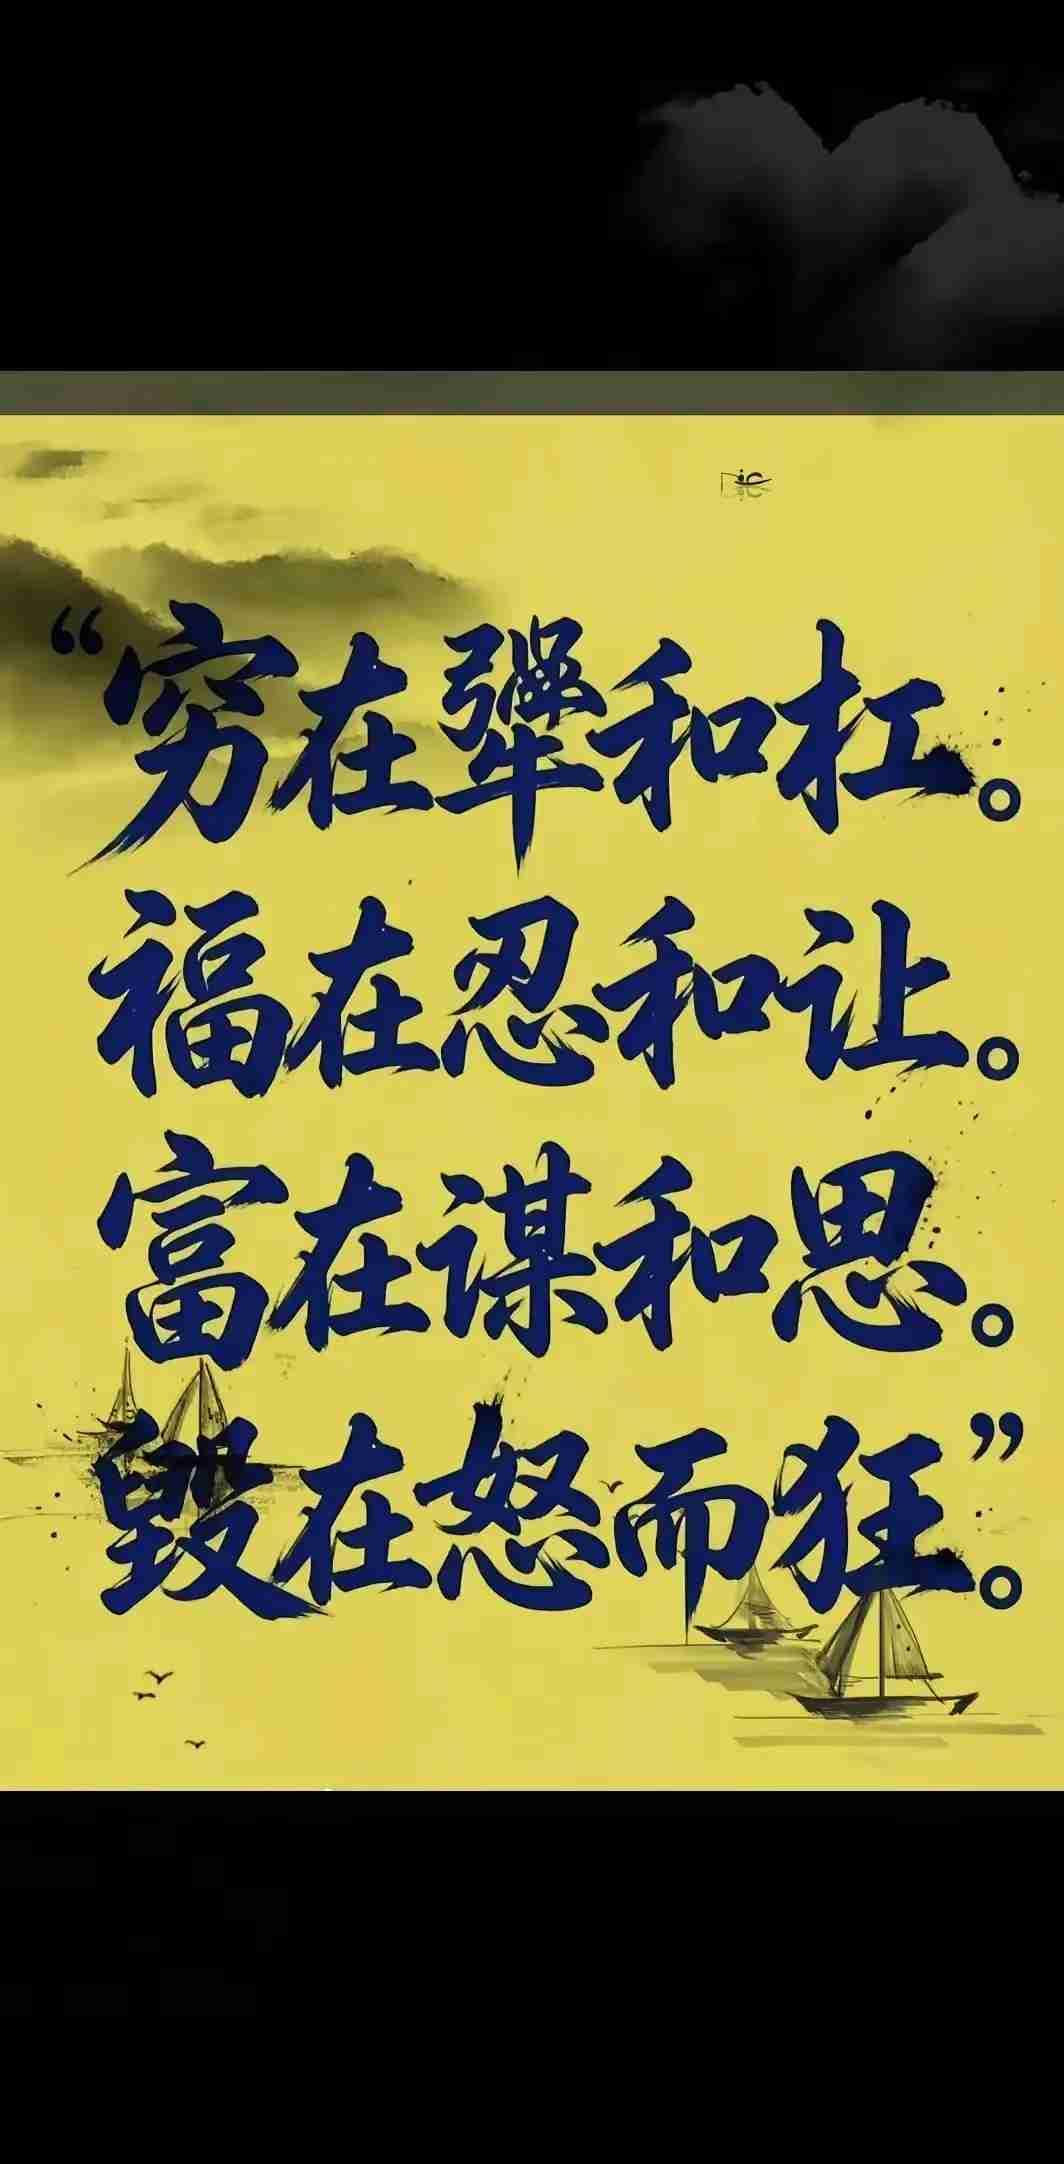 “穷在犟和杠。
福在忍和让。
富在谋和思。
毁在怒而狂。”